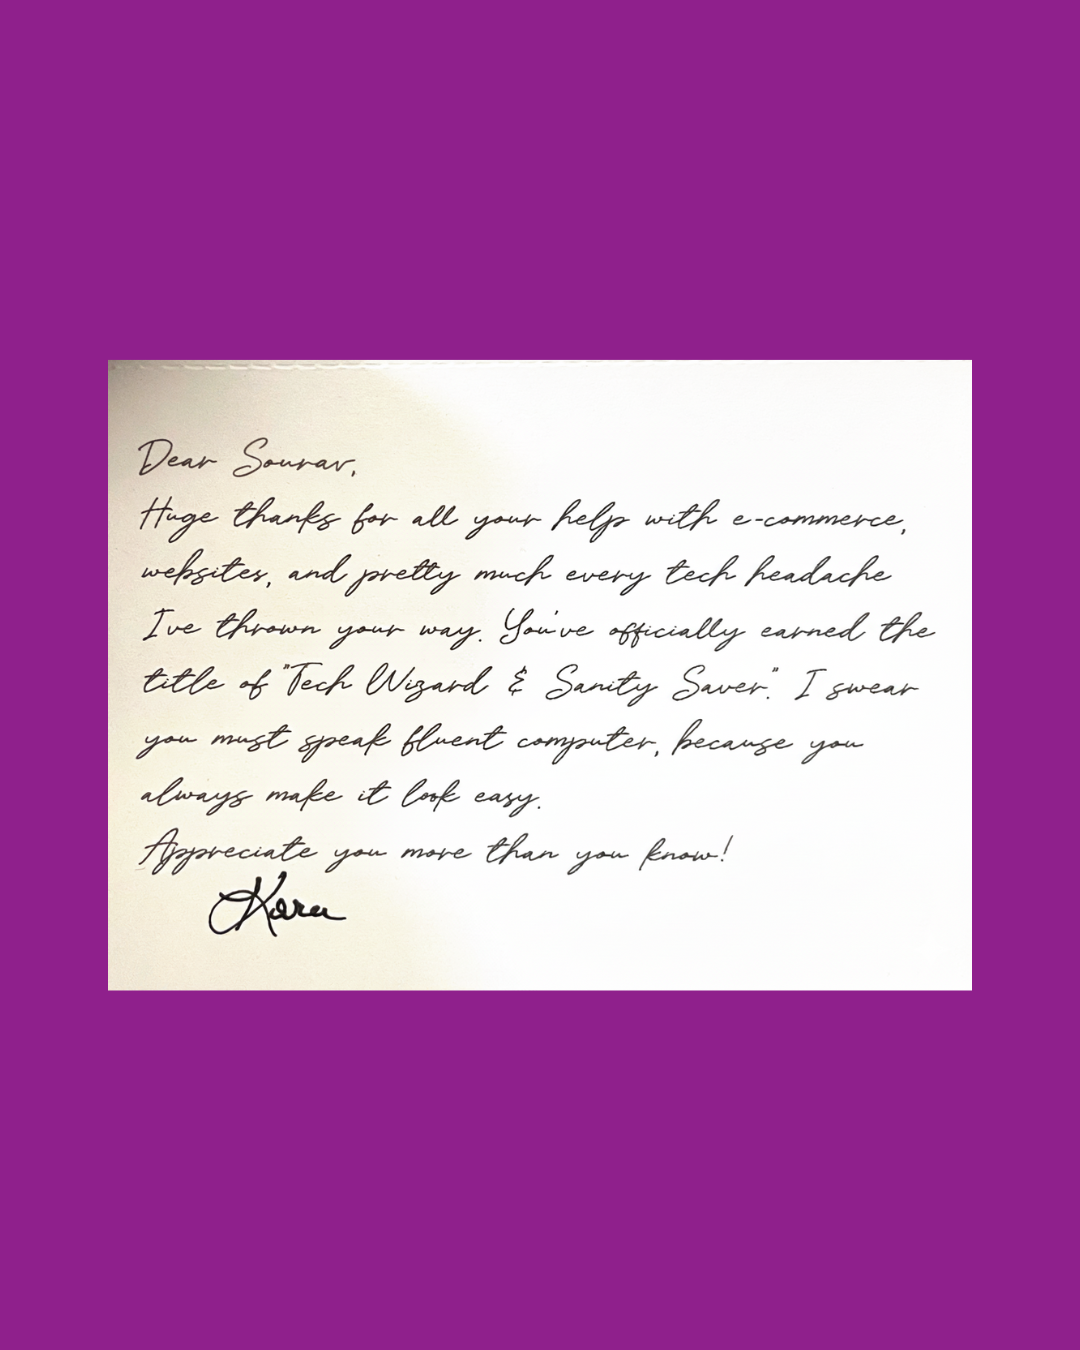 Dear Sourav,
Huge thanks for all your help with e-commerce,
websites, and pretty much every tech headache
I've thrown your way. You've officially earned the
title of "Tech Wizard & Sanity Saver." I swear
you must speak fluent computer, because you
always make it look easy.
Appreciate you more than you know!
Kara